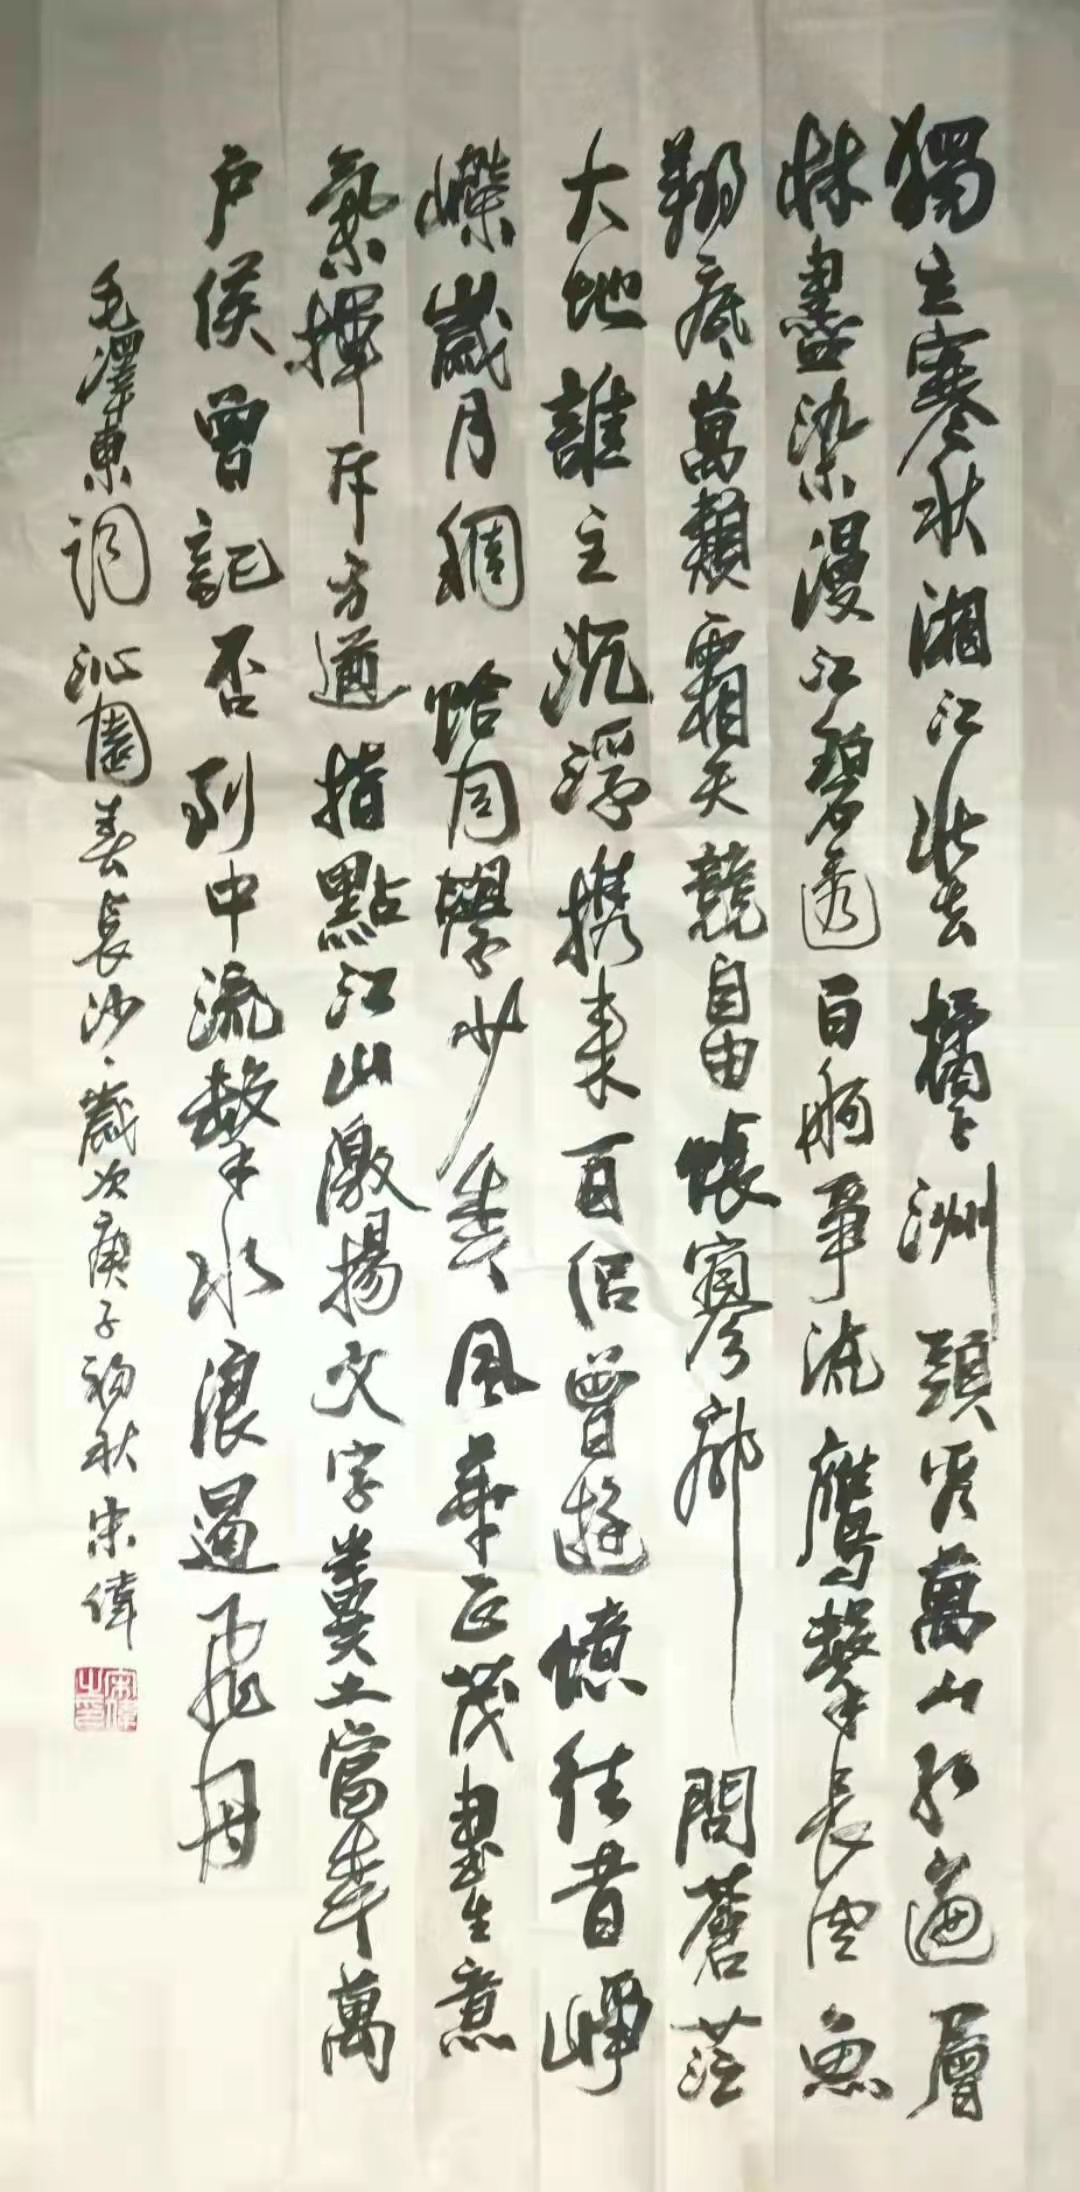 獨立寒秋湘江北去橘子洲頭看萬山紅遍層
林盡染漫江碧透百舸爭流鷹擊長空魚
翔底萬類霜天競自由悵寥廓問蒼茫
大地誰主沉浮携来百侣曾遊憶往昔崢
嶸歲月稠恰同學少年風華正茂書生意
氣揮斥方遒指點江山激揚文字糞土當年萬
户侯曾記否到中流擊水浪遏飛舟
毛澤東詞沁園春長沙歲次庚子初秋宋偉
宋偉之印